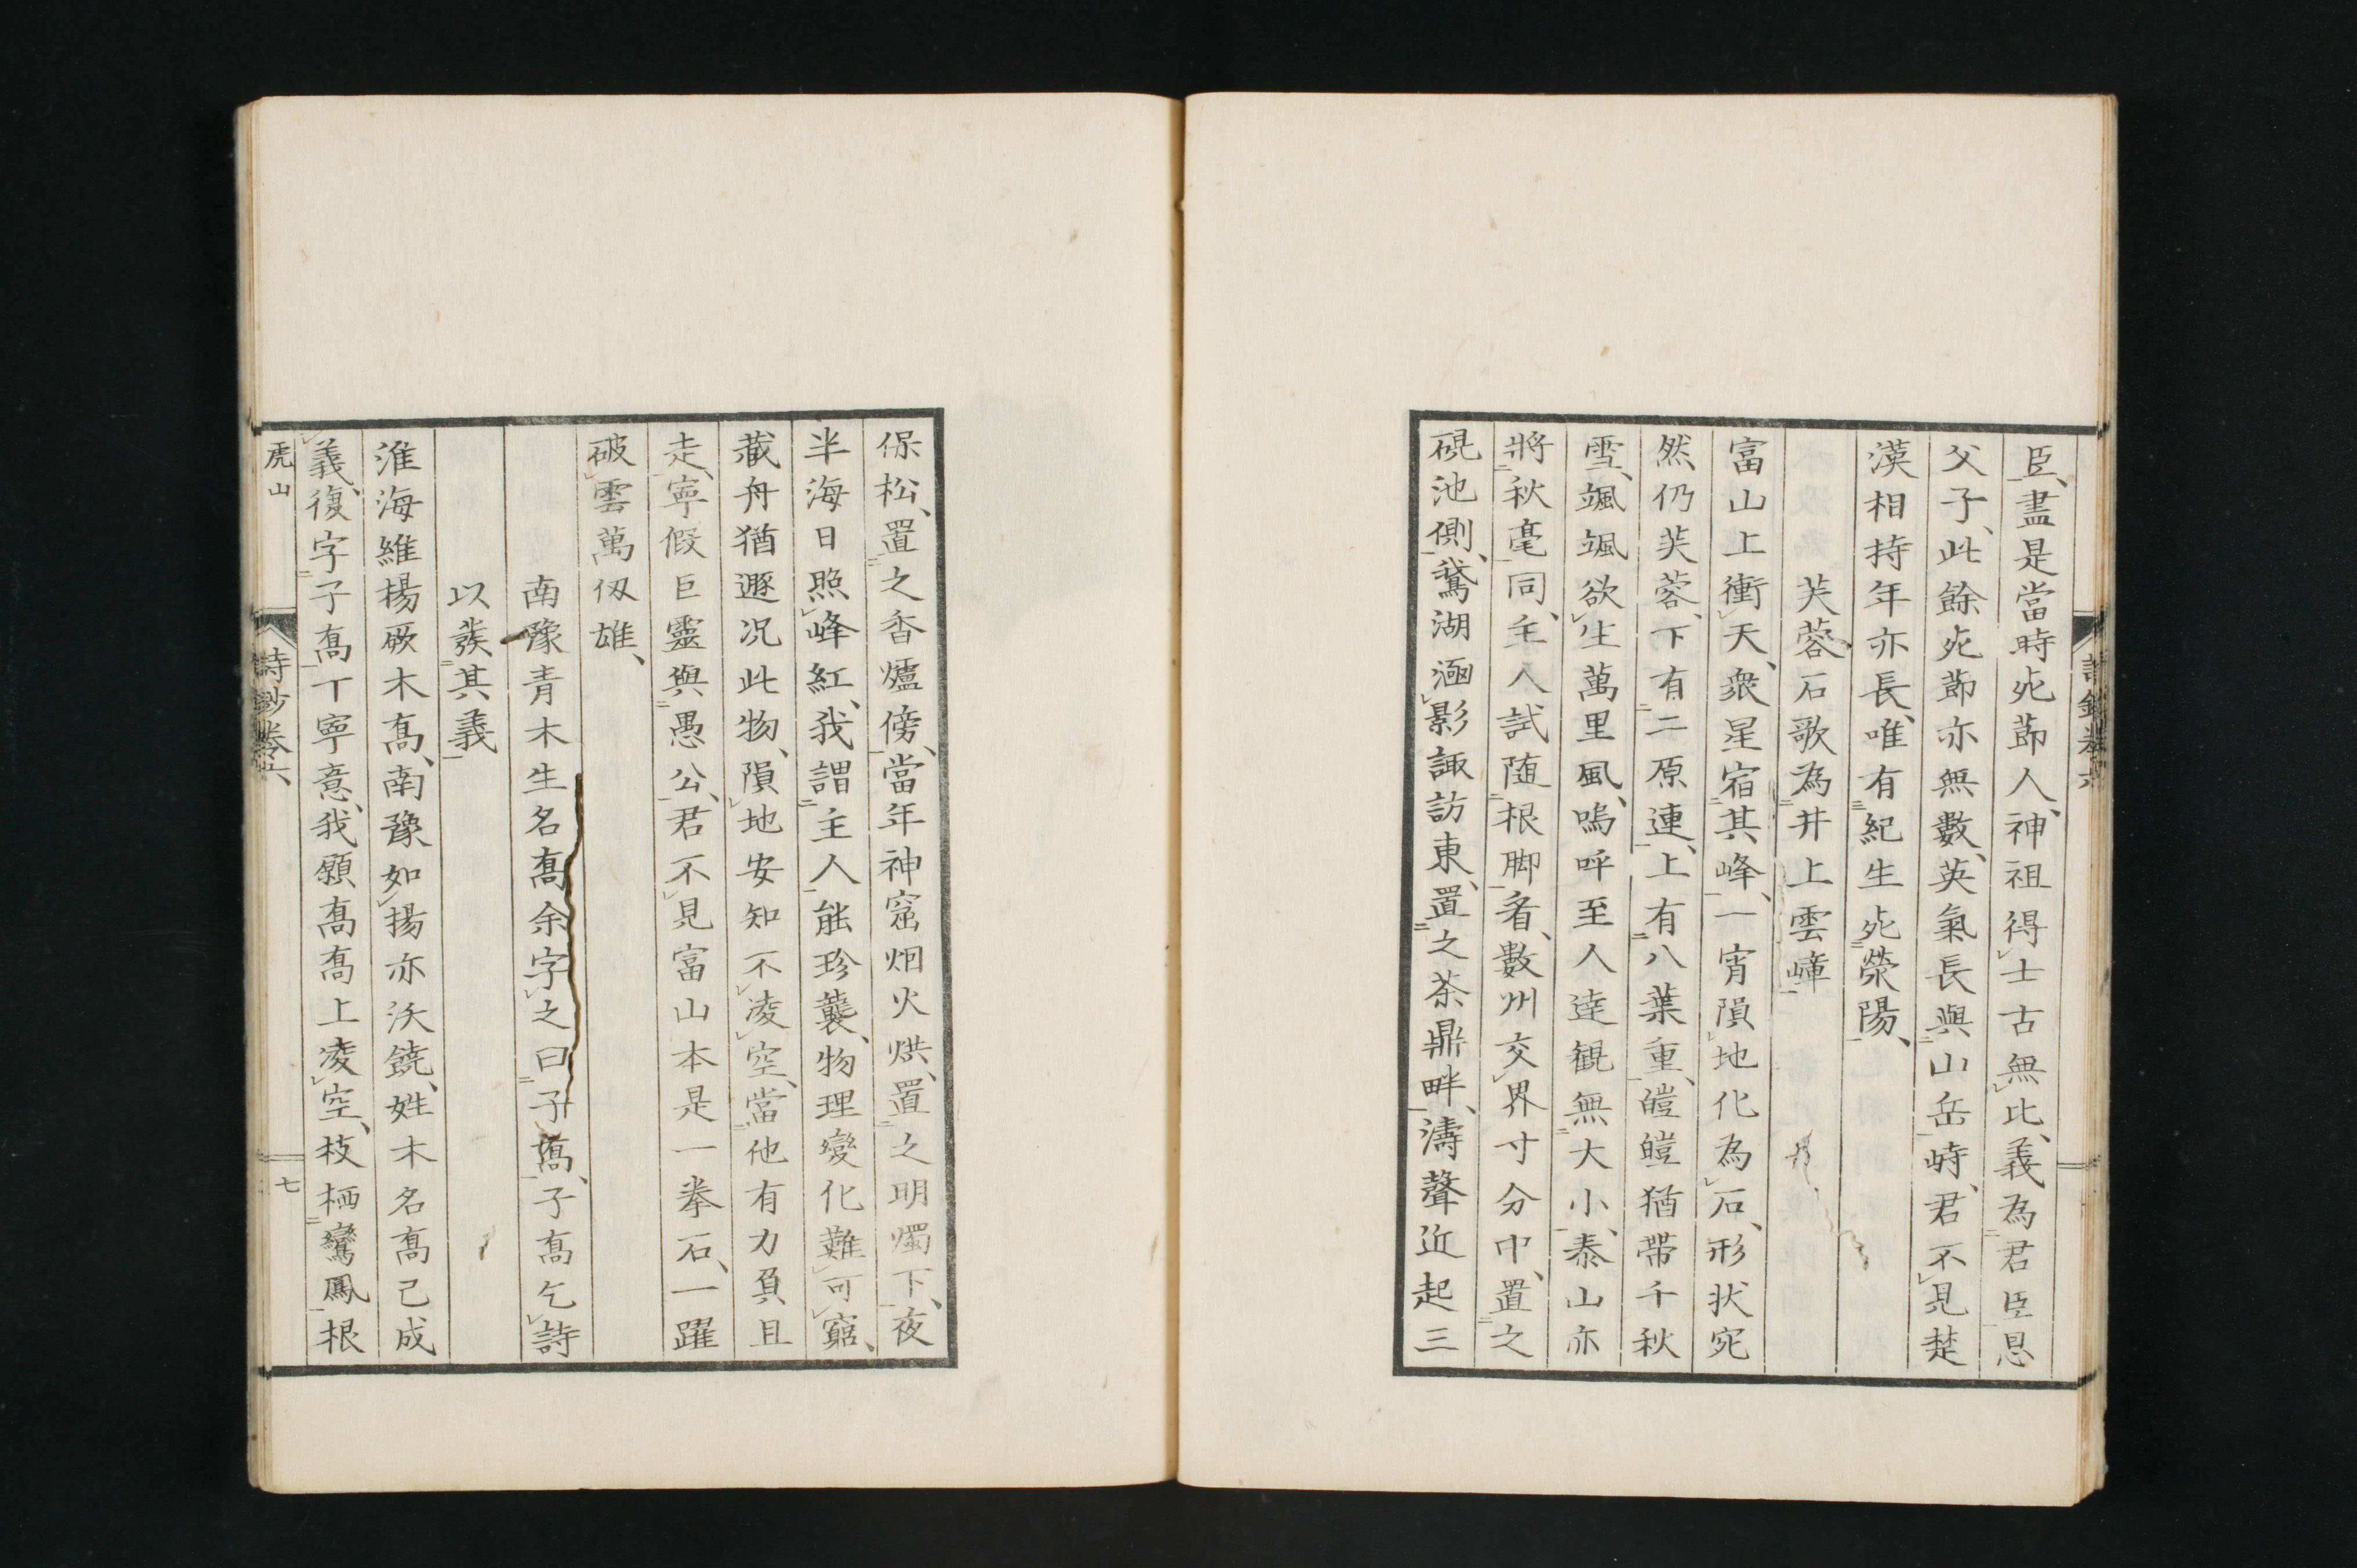 臣、盡是當時死節人、神祖得士古無比、義為君臣恩
父子、此餘死節亦無數、英氣長與山岳峙、君不見楚
漢相持年亦長、唯有紀生死滎陽、
芙蓉石歌為井上雲嶂
富山上衝天、衆星宿其峰、一宵隕地化為石、形狀宛
然仍芙蓉、下有二原連、上有八葉重、皚皚猶帶千秋
雪、颯颯欲生萬里風、嗚呼至人達観無大小、泰山亦
將秋毫同、主人試随根脚看、數州交界寸分中、置之
硯池側、鵞湖涵影諏訪東、置之茶鼎畔、濤聲近起三
詩鈔卷六
保松、置之香爐傍、當年神窟烟火烘、置之明燭下、夜
半海日照峰紅、我謂主人能珍襲、物理變化難可窮、
藏舟猶遯况此物、隕地安知不凌空、當他有力負且
走、寧假巨靈與愚公、君不見富山本是一拳石、一躍
破雲萬仭雄、
南豫青木生名喬余字之曰子喬、子喬乞詩
以發其義
淮海維楊厥木喬、南豫如揚亦沃饒、姓木名喬已成
義、復字子喬丁寧意、我願喬喬上凌空、枝栖鸞鳳根
虎山
詩鈔卷六
七